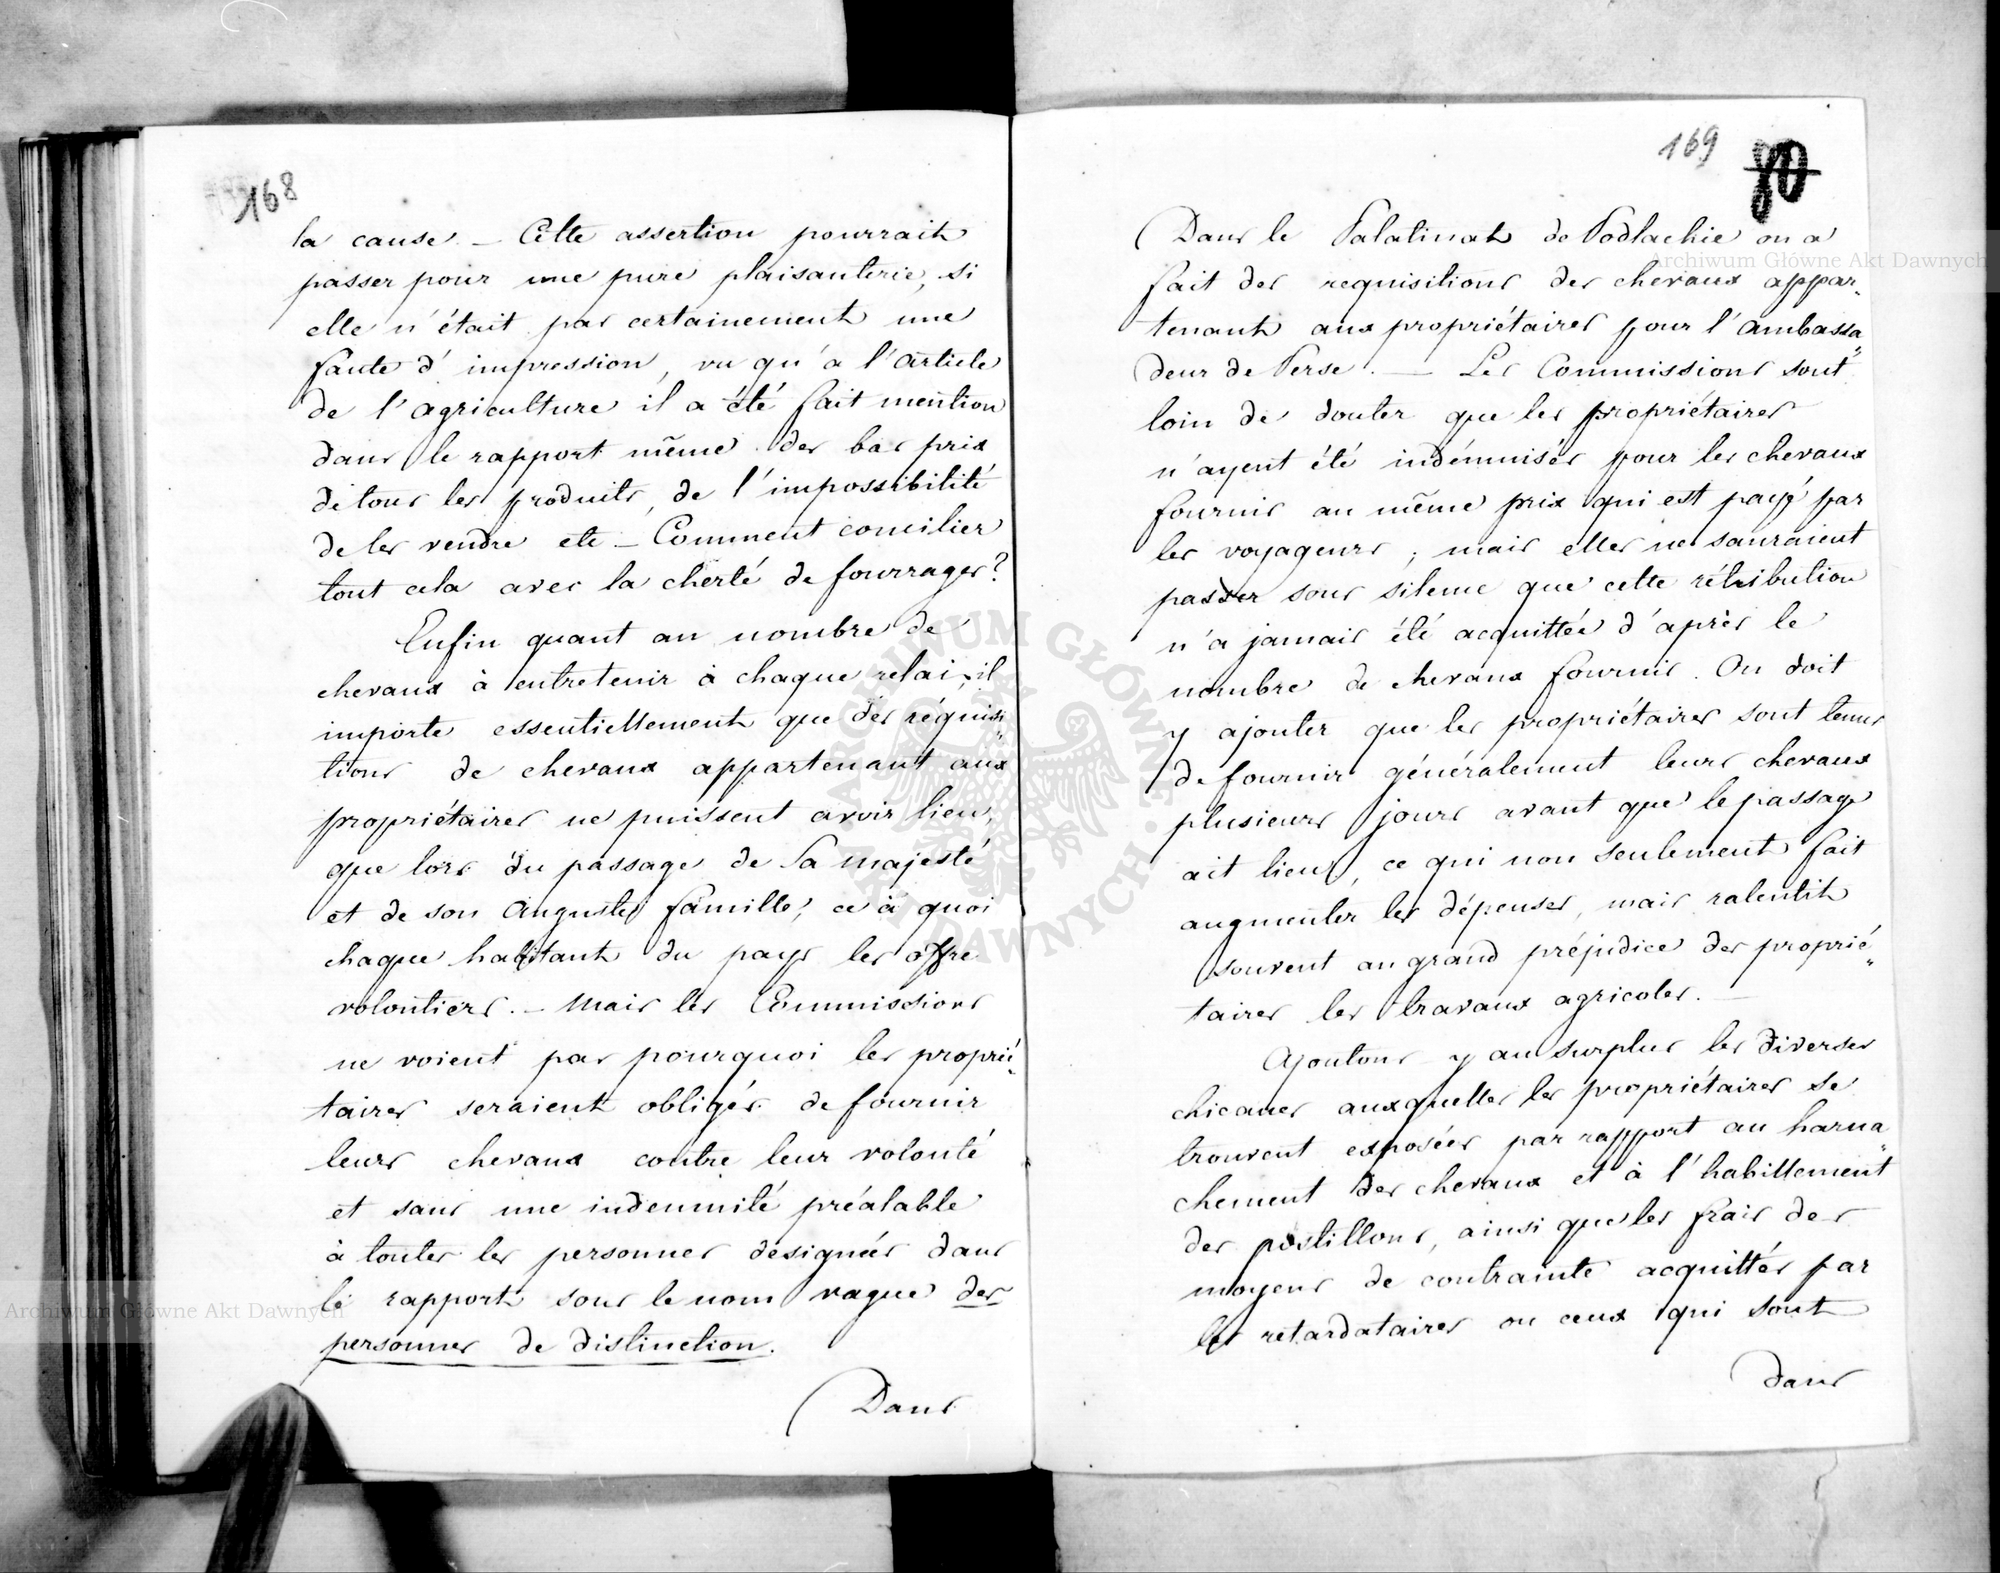 168
la cause. – Cette assertion pourrait
passer pour une pure plaisanterie, si
elle n'était pas certainement une
faute d'impression, vu qu'a l'article
de l'agriculture il a été fait mention
dans le rapport même des bas prix
de tous les produits, de l'impossibilité
de les vendre etc – Comment concilier
tout cela avec la cherté de fourrages?
Enfin quant au nombre de
chevaux à entretenir à chaque relai, il
importe essentiellement que des réquisi„
tions de chevaux appartenant aux
propriétaires ne puissent avoir lieu,
que lors du passage de Sa majesté
et de son Auguste famille, ce à quoi
chaque habitant du pays les offre
volontiers. – Mais les Commissions
ne voient pas pourquoi les proprié„
taires seraient obligés de fournir
leurs chevaux contre leur volonté
et sans une indemnité préalable
à toutes les personnes désignées dans
le rapport sous le nom vague des
personnes de distinction.
Dans
169
80
Dans le Palatinat de Podlachie on a
fait des requisitions des chevaux appar„
tenant aux propriétaires pour l'ambassa„
deur de Perse. — Les Commissions sont
loin de douter que les propriétaires
n'ayent été indémnisés pour les chevaux
fournis au même prix qui est payé par
les voyageurs; mais elles ne sauraient
passer sous silence que cette rétribution
n'a jamais été acquittée d'après le
nombre de chevaux fournis. On doit
y ajouter que les propriétaires sont tenus
de fournir généralement leurs chevaux
plusieurs jours avant que le passage
ait lieu, ce qui non seulement fait
augmenter les dépenses, mais ralentit
souvent au grand préjudice des proprié„
taires les travaux agricoles. —
Ajoutons y au surplus les diverses
chicanes auxquelles les propriétaires se
trouvent exposées par rapport au harna„
chement des chevaux et à l'habillement
des postillons, ainsi que les frais des
moyens de contrainte acquittés par
les retardataires ou ceux qui sont
dans
Archiwum Główne Akt Dawnych
Archiwum Główne Akt Dawnych
ARCHIWUM GŁÓWNE AKT DAWNYCH